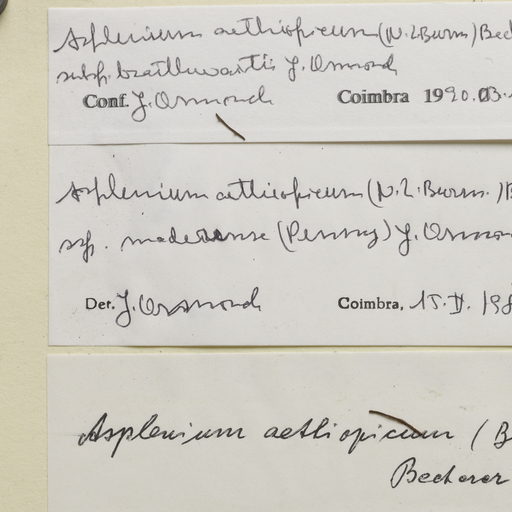 Asplenium aethiopicum (N.L.Burm) Bec
subsp. braithwaitii J. Ormond
Conf. J. Ormond Coimbra 1990.03.
Asplenium aethiopicum (N.L.Burm.) B
ssp. maderense (Penny) J. Ormon
Det. J. Ormond Coimbra, 15.II.198
Asplenium aethiopicum (B
Becherer